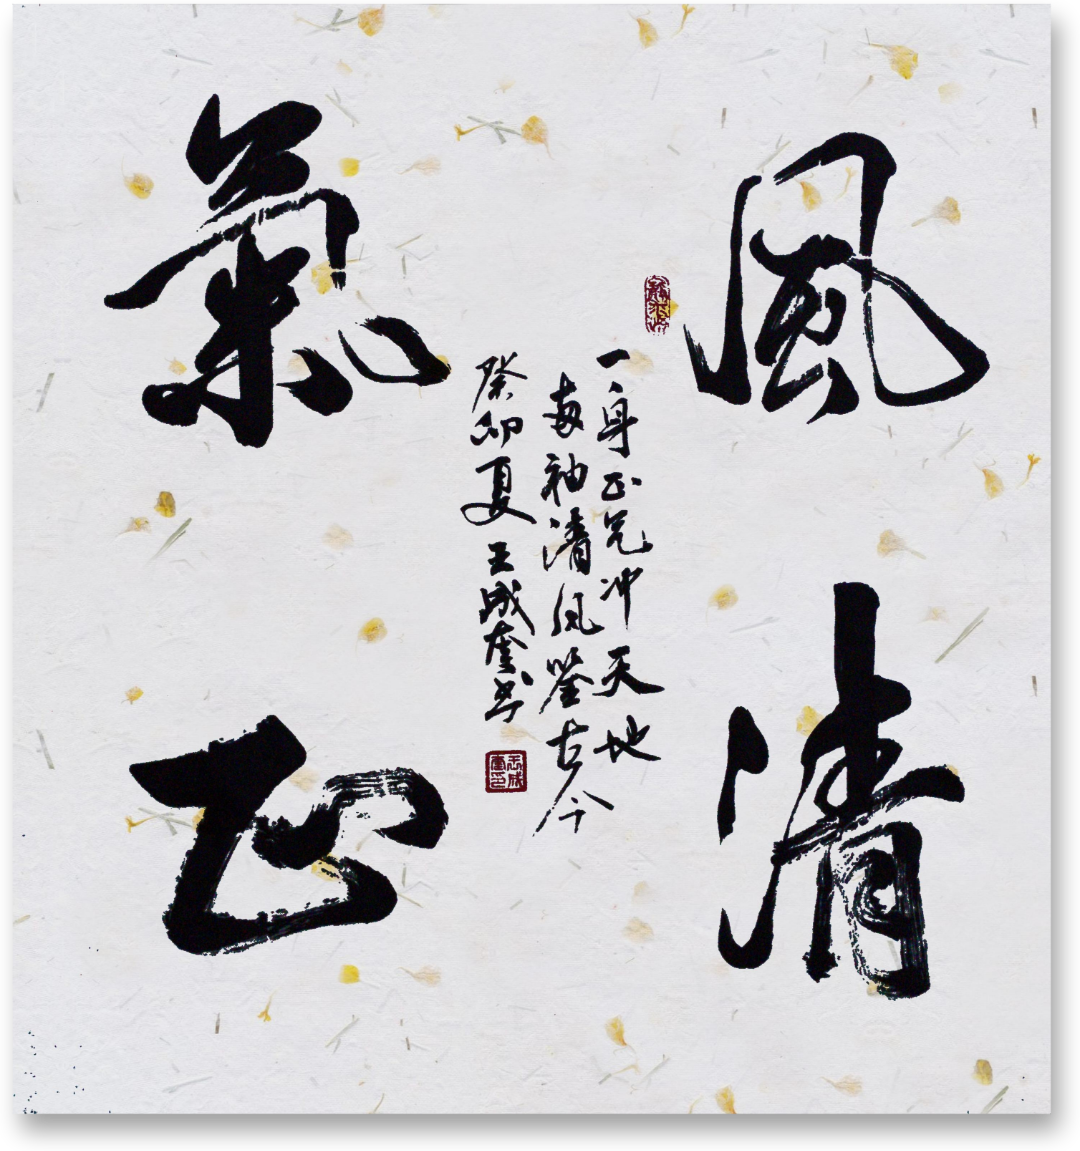 風清
一身正气冲天地
两袖清风鉴古今
癸卯夏 王成奎书
王成奎印
氣正